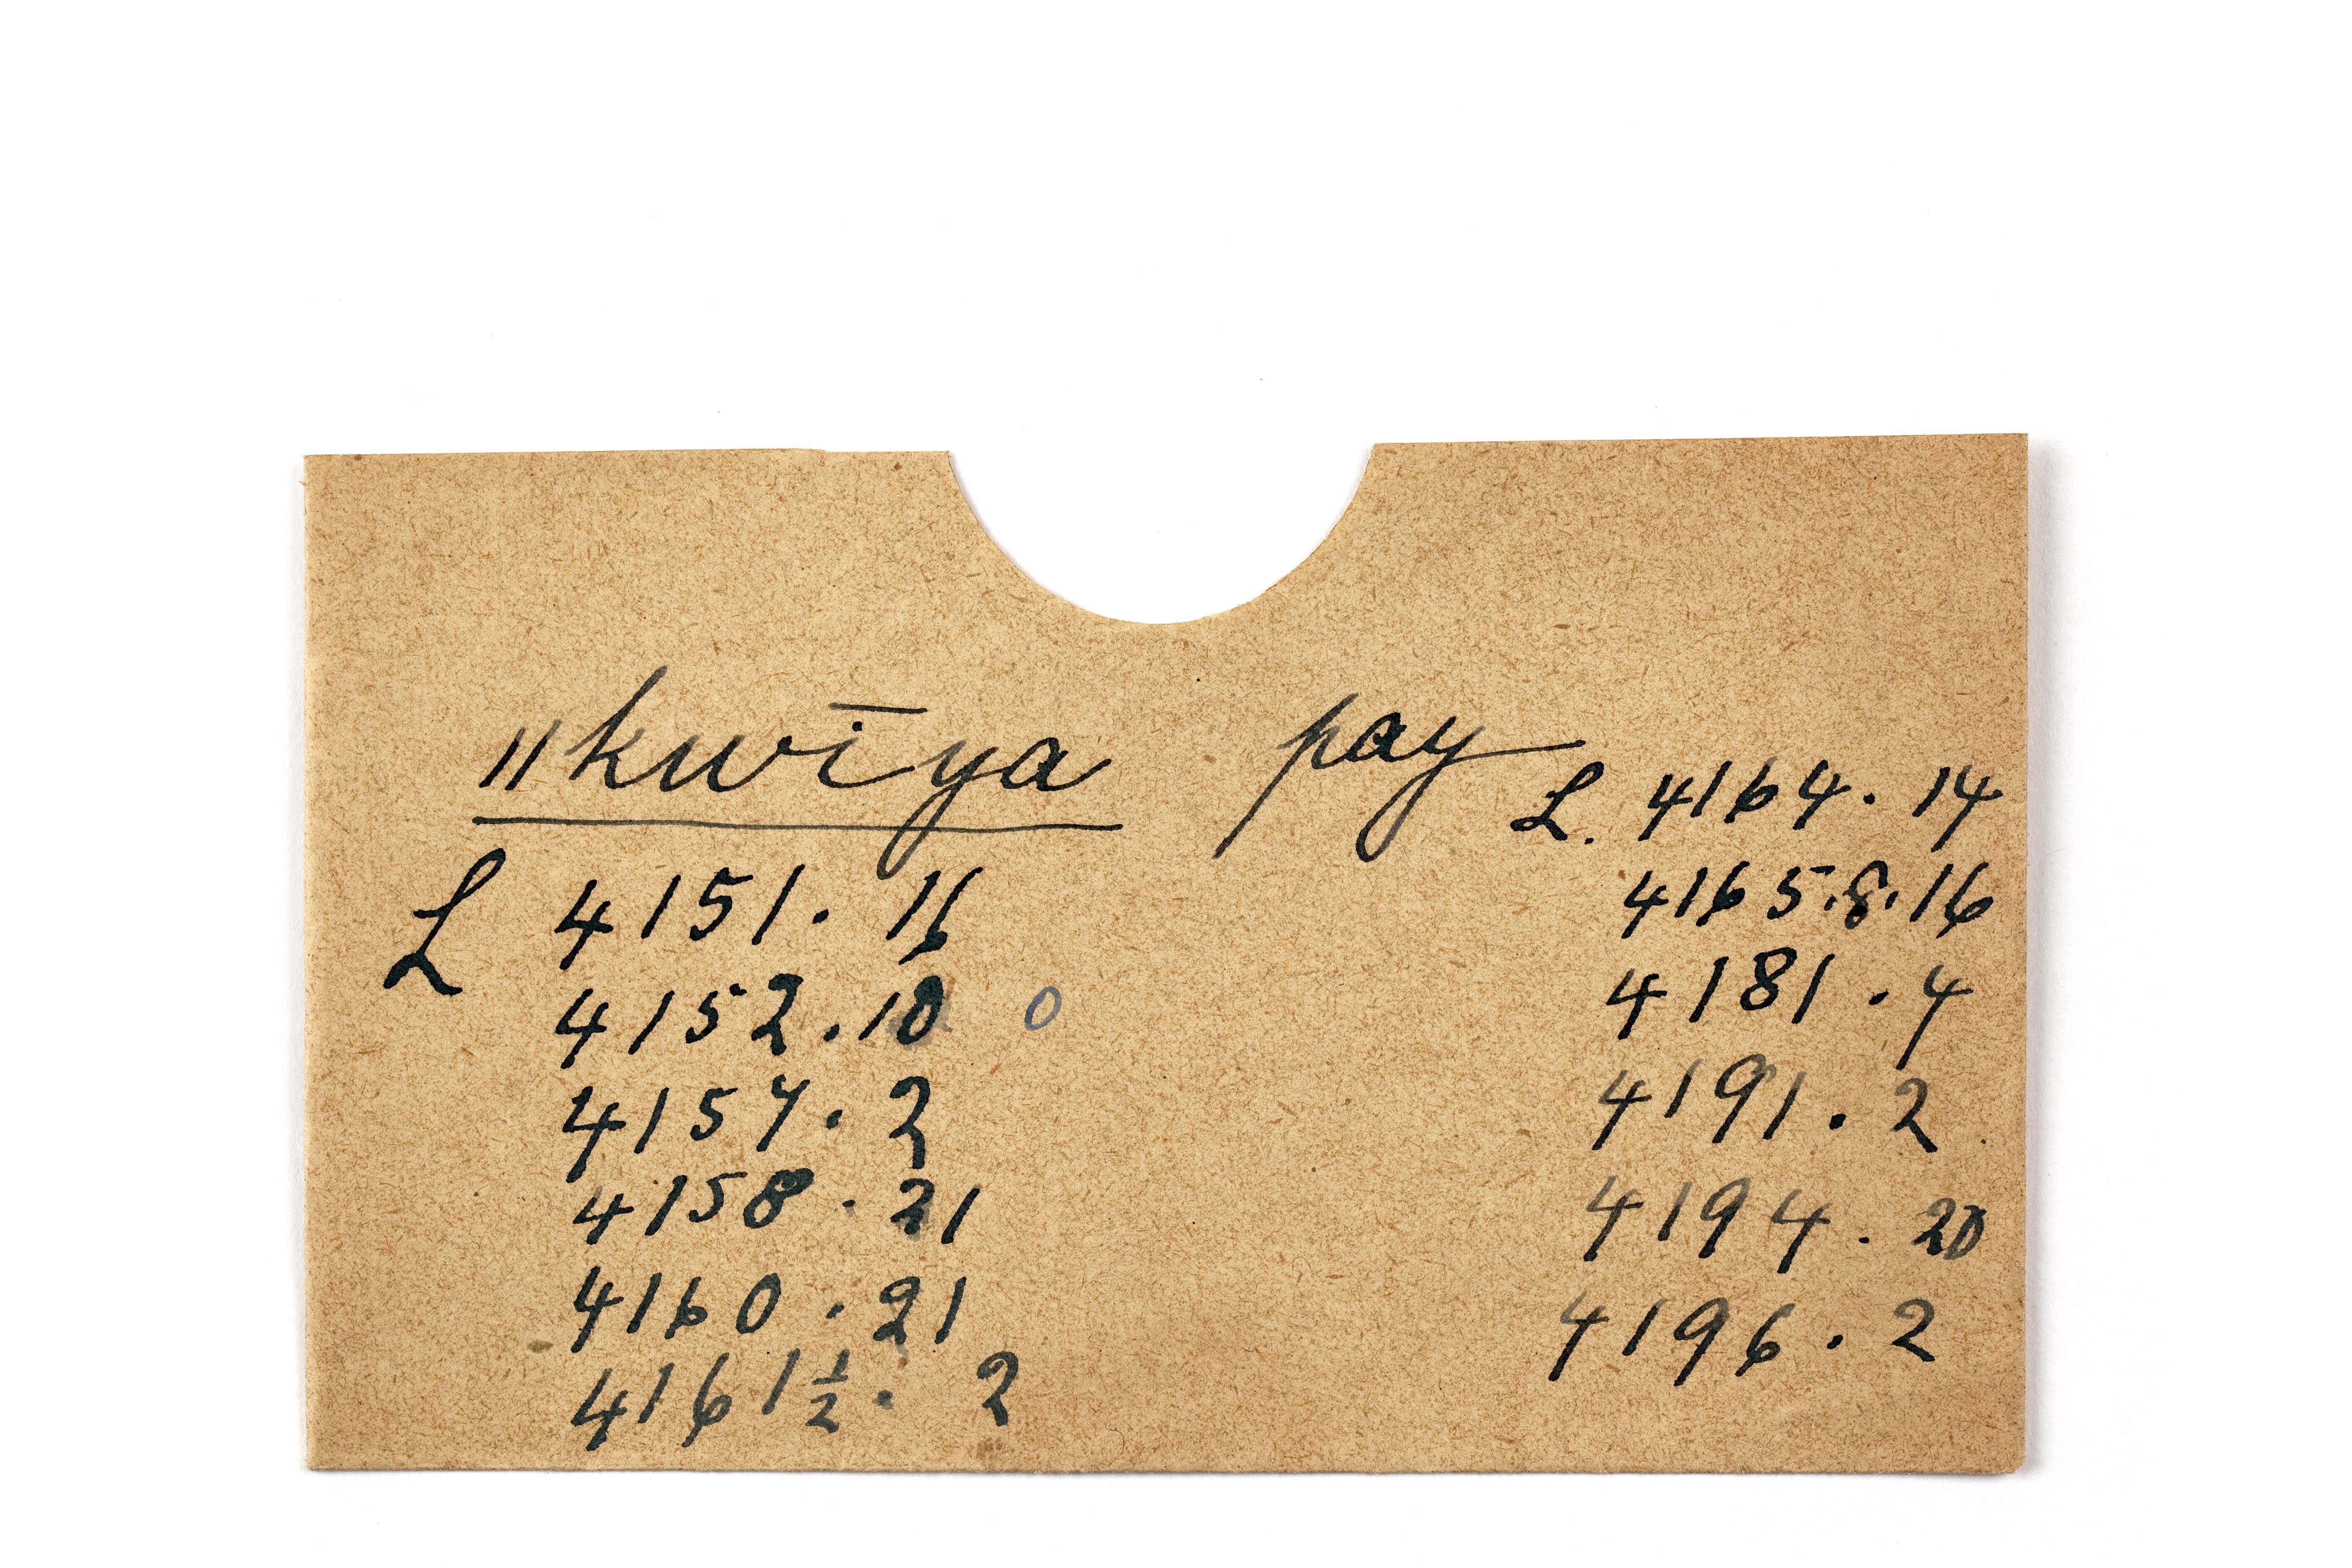 ||kwīya pay
L 4151. 16
4152.10 0
4157. 2
4158. 21
4160. 21
4161½. 2
L. 4164. 14
4165.8.16
4181. 4
4191. 2
4194. 20
4196. 2